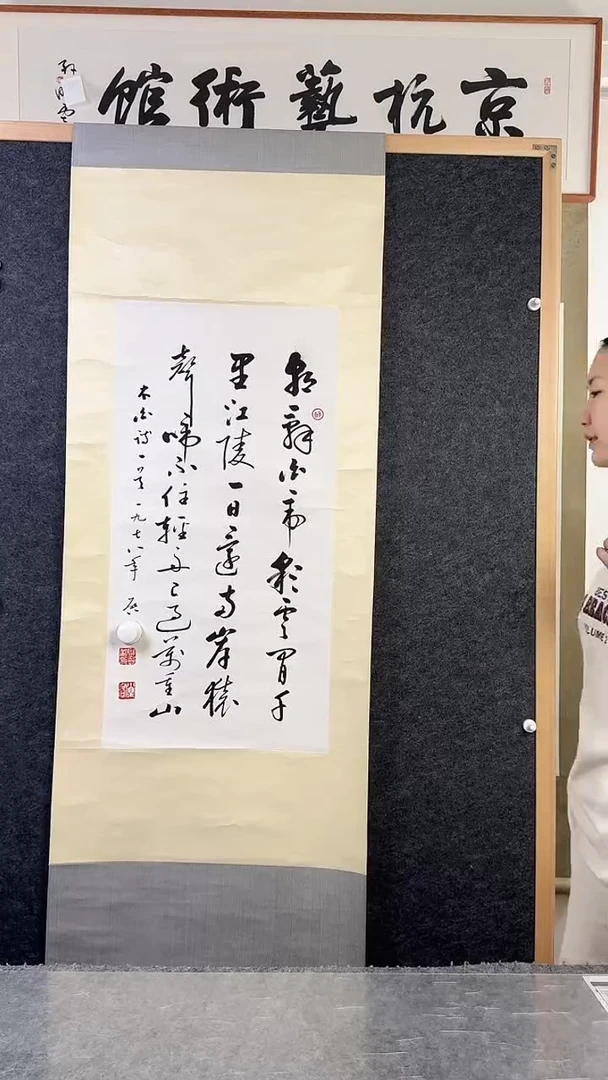 京杭藝術館
朝辭白帝彩雲間千
里江陵一日還兩岸猿
聲啼不住輕舟已過萬重山
太白詩一首 一九七八年 啟